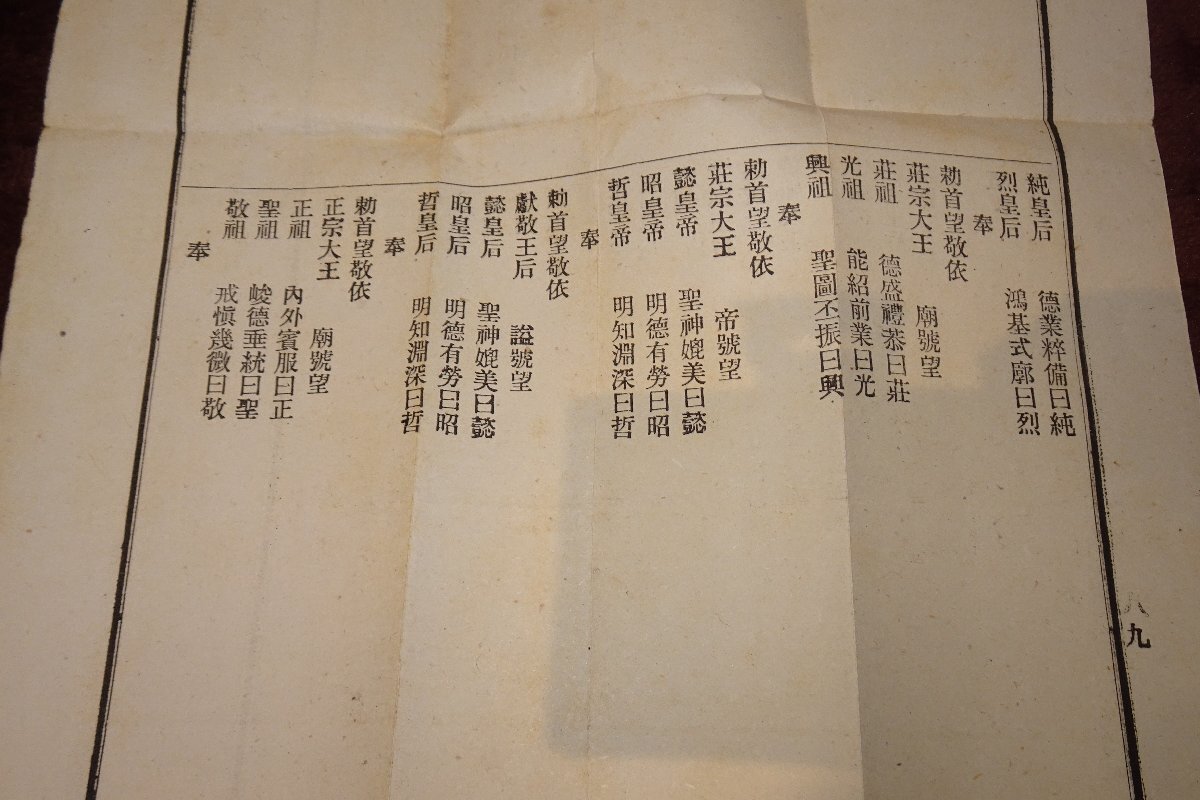 純皇后 德業粹備曰純
烈皇后 鴻基式廓曰烈
奉
勅首望敬依
莊宗大王 廟號望
莊祖 德盛禮恭曰莊
光祖 能紹前業曰光
興祖 聖圖丕振曰興
奉
勅首望敬依
莊宗大王 帝號望
懿皇帝 聖神媲美曰懿
昭皇帝 明德有勞曰昭
哲皇帝 明知淵深曰哲
奉
勅首望敬依
獻敬王后 謚號望
懿皇后 聖神媲美曰懿
昭皇后 明德有勞曰昭
哲皇后 明知淵深曰哲
奉
勅首望敬依
正宗大王 廟號望
正祖 內外賓服曰正
聖祖 峻德垂統曰聖
敬祖 戒愼幾微曰敬
奉
八九